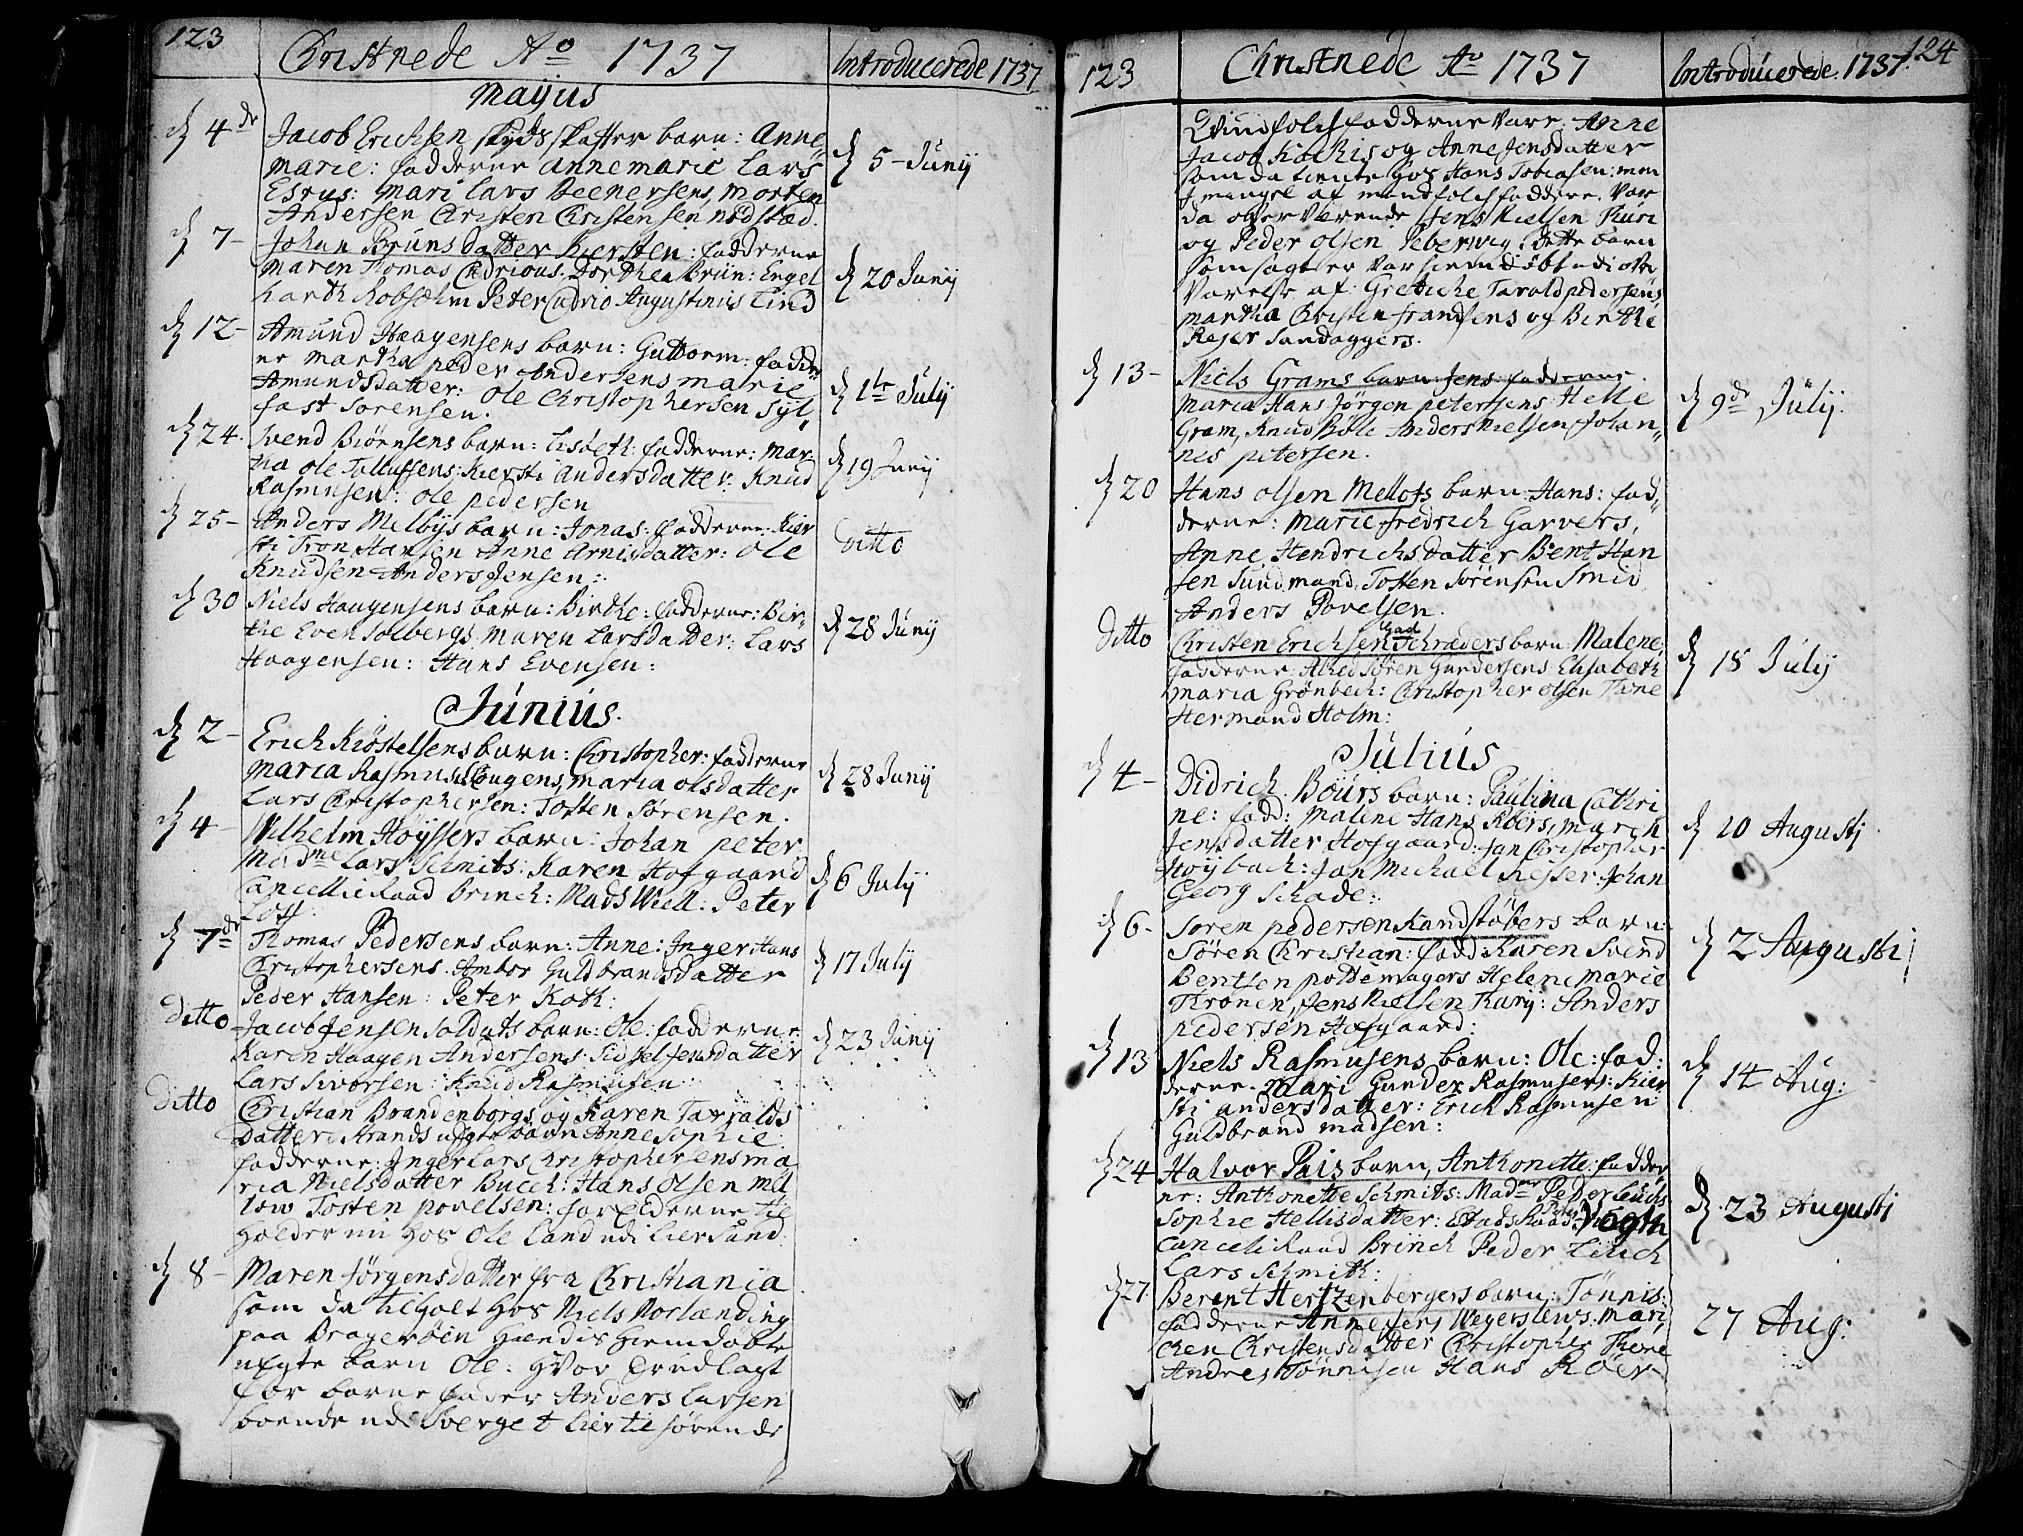 123
Christnede Ao 1737
Introducerede 1737
Mayus
d 4de
Jacob Erichsen skydsskaffer barn: Anne
marie: fadderne Anne marie Lars
Esrus: Mari Lars Morten
Andersen Christen Christensen
d 5- Junij
d 7-
Johan Bruns datter Kiersten: fadderne
Maren Thomas Dorthea Brun: Engel
Peter Cudrio Augustinus Lind
d 20 Junij
d 12-
Amund Haagensens barn: Guttorm: fadde
ne Martha peder Andersens marie
Amundsdatter: Ole Christophersen Syl
fast Sorensen.
d 1te Julij
d 24.
Svend Biørnsens barn: Lisbeth: fadderne: Mar-
tha Ole Tollufsens: Kiersti Andersdatter: Knud
Rasmusen: Ole pedersen
d 19 Junij
d 25-
Anders Melbys barn: Jonas: fadderne: Kier
sti Tron Hansen Anne Arnisdatter: Ole
Knudsen Anders Jensen:
Ditto
d 30
Niels Haagensens barn: Birthe: fadderne: Bir-
the Even Solbergs Maren Larsdatter: Lars
Haagensen: Hans Evensen:
d 28 Junij
Junius.
d 2-
Erich Kiøstelsens barn: Christopher: fadderne
Maria Rasmus Maria Olsdatter
Lars Christophersen: Tosten Sørensen.
d 28 Junij
d 4-
Wilhelm Høyssers barn: Johan peter
Madme Lars Schmits: Karen Hofgaard
Cancellie Raad Brinch: Mads Wiell: Peter
d 6 Julij
d 7de
Thomas Pedersens barn: Anne: Inger Hans
Christophersens Ambor Guldbrandsdatter
Peder Hansen: Peter Koth:
d 17 Julij
Ditto
Jacob Jensen Soldats barn: Ole: fadderne
Karen Haagen Andersens Sidsel Jensdatter
Lars Knud Rasmusen
d 23 Junij
Ditto
Christian Brandenborgs og Karen Taralds
datter Strands uegte barn Anne Sophie:
fadderne: Inger Lars Christophersens ma
ria Nielsdatter Bucch: Hans Olsen
Tosten povelsen: forelderne til
holder nu hos Ole Land udi Liersund
d 8-
Maren Jørgensdatter fra Christiania
som da tilholt hos Niels Norlanding
paa Bragerøen hendis hiemdøbte
uegte barn Ole: hvor
for barne fader Anders Larsen
boende udi Sverge
123
Christnede Ao 1737
Introducerede 1737
124
Qvindfolch fadderne vare: Anne
Jacob og Anne Jensdatter
som da tiente hos Hans Tobiasen: men
j mangel af mandfolch faddere var
da overværende Jens Nielsen
og Peder Olsen Peberwig: Dette barn
som sagt er var hiemdøbt udi over
værelse af Taraldpedersens
Martha Christen frandsens og Birthe
Rejer Sandaggers.
d 13-
Niels Grams barn: Jens: fadderne
Maria Hans Jørgen petersens: Helle
Gram, Knud Anders Nielsen, Johan
nes petersen.
d 9de Julij.
d 20
Hans Olsen Mellois barn: Hans: fad-
derne: Marie fredrich Garvers,
Anne Hendrichsdatter Bent Han
sen Sundmand, Tosten Sørensen Smid
Anders Povelsen.
Ditto
Christen Erichsen Schræders barn: Malene:
fadderne: Søren Gundersens Elisabeth
Maria Grønbech: Christopher Olsen
Hermand Holm:
d 15 Julij
Julius
d 4-
Didrich Bøurs barn: Paulina Cathri
ne: fadd: Malene Hans Røers, Maren
Jensdatter Hofgaard: Jan Christopher
Høybach: Jan Michael Rejser: Johan
Georg Schade:
d 10 Augusti
d 6-
Søren pedersen Kandstøbers barn:
Søren Christian: fadd: Karen Svend
Bentsen pottemagers Helene Marie
Kronen, Jens Nielsen Anders
pedersen Hofgaard:
d 2 Augusti
d 13
Niels Rasmusens barn: Ole: fad:
derne. Mari Gunder Rasmusens: Kier
sti andersdatter: Erich Rasmusen
Guldbrand Madsen:
d 14 Aug:
d 24
Halvor Pais barn, Anthonette: fadder
ne: Anthonette Schmits: Madme Peder
Sophie Hellisdatter: Vogtn
Cancelie Raad Brinch Peder
Lars Schmith:
d 23 Augusti
d 27
Berent Hertzenbergers barn: Tønnis:
fadderne Anne Jens Wegerslews: Mari
chen Christensdatter Christopher
Andres Tønnisen Hans Røer
27 Aug: